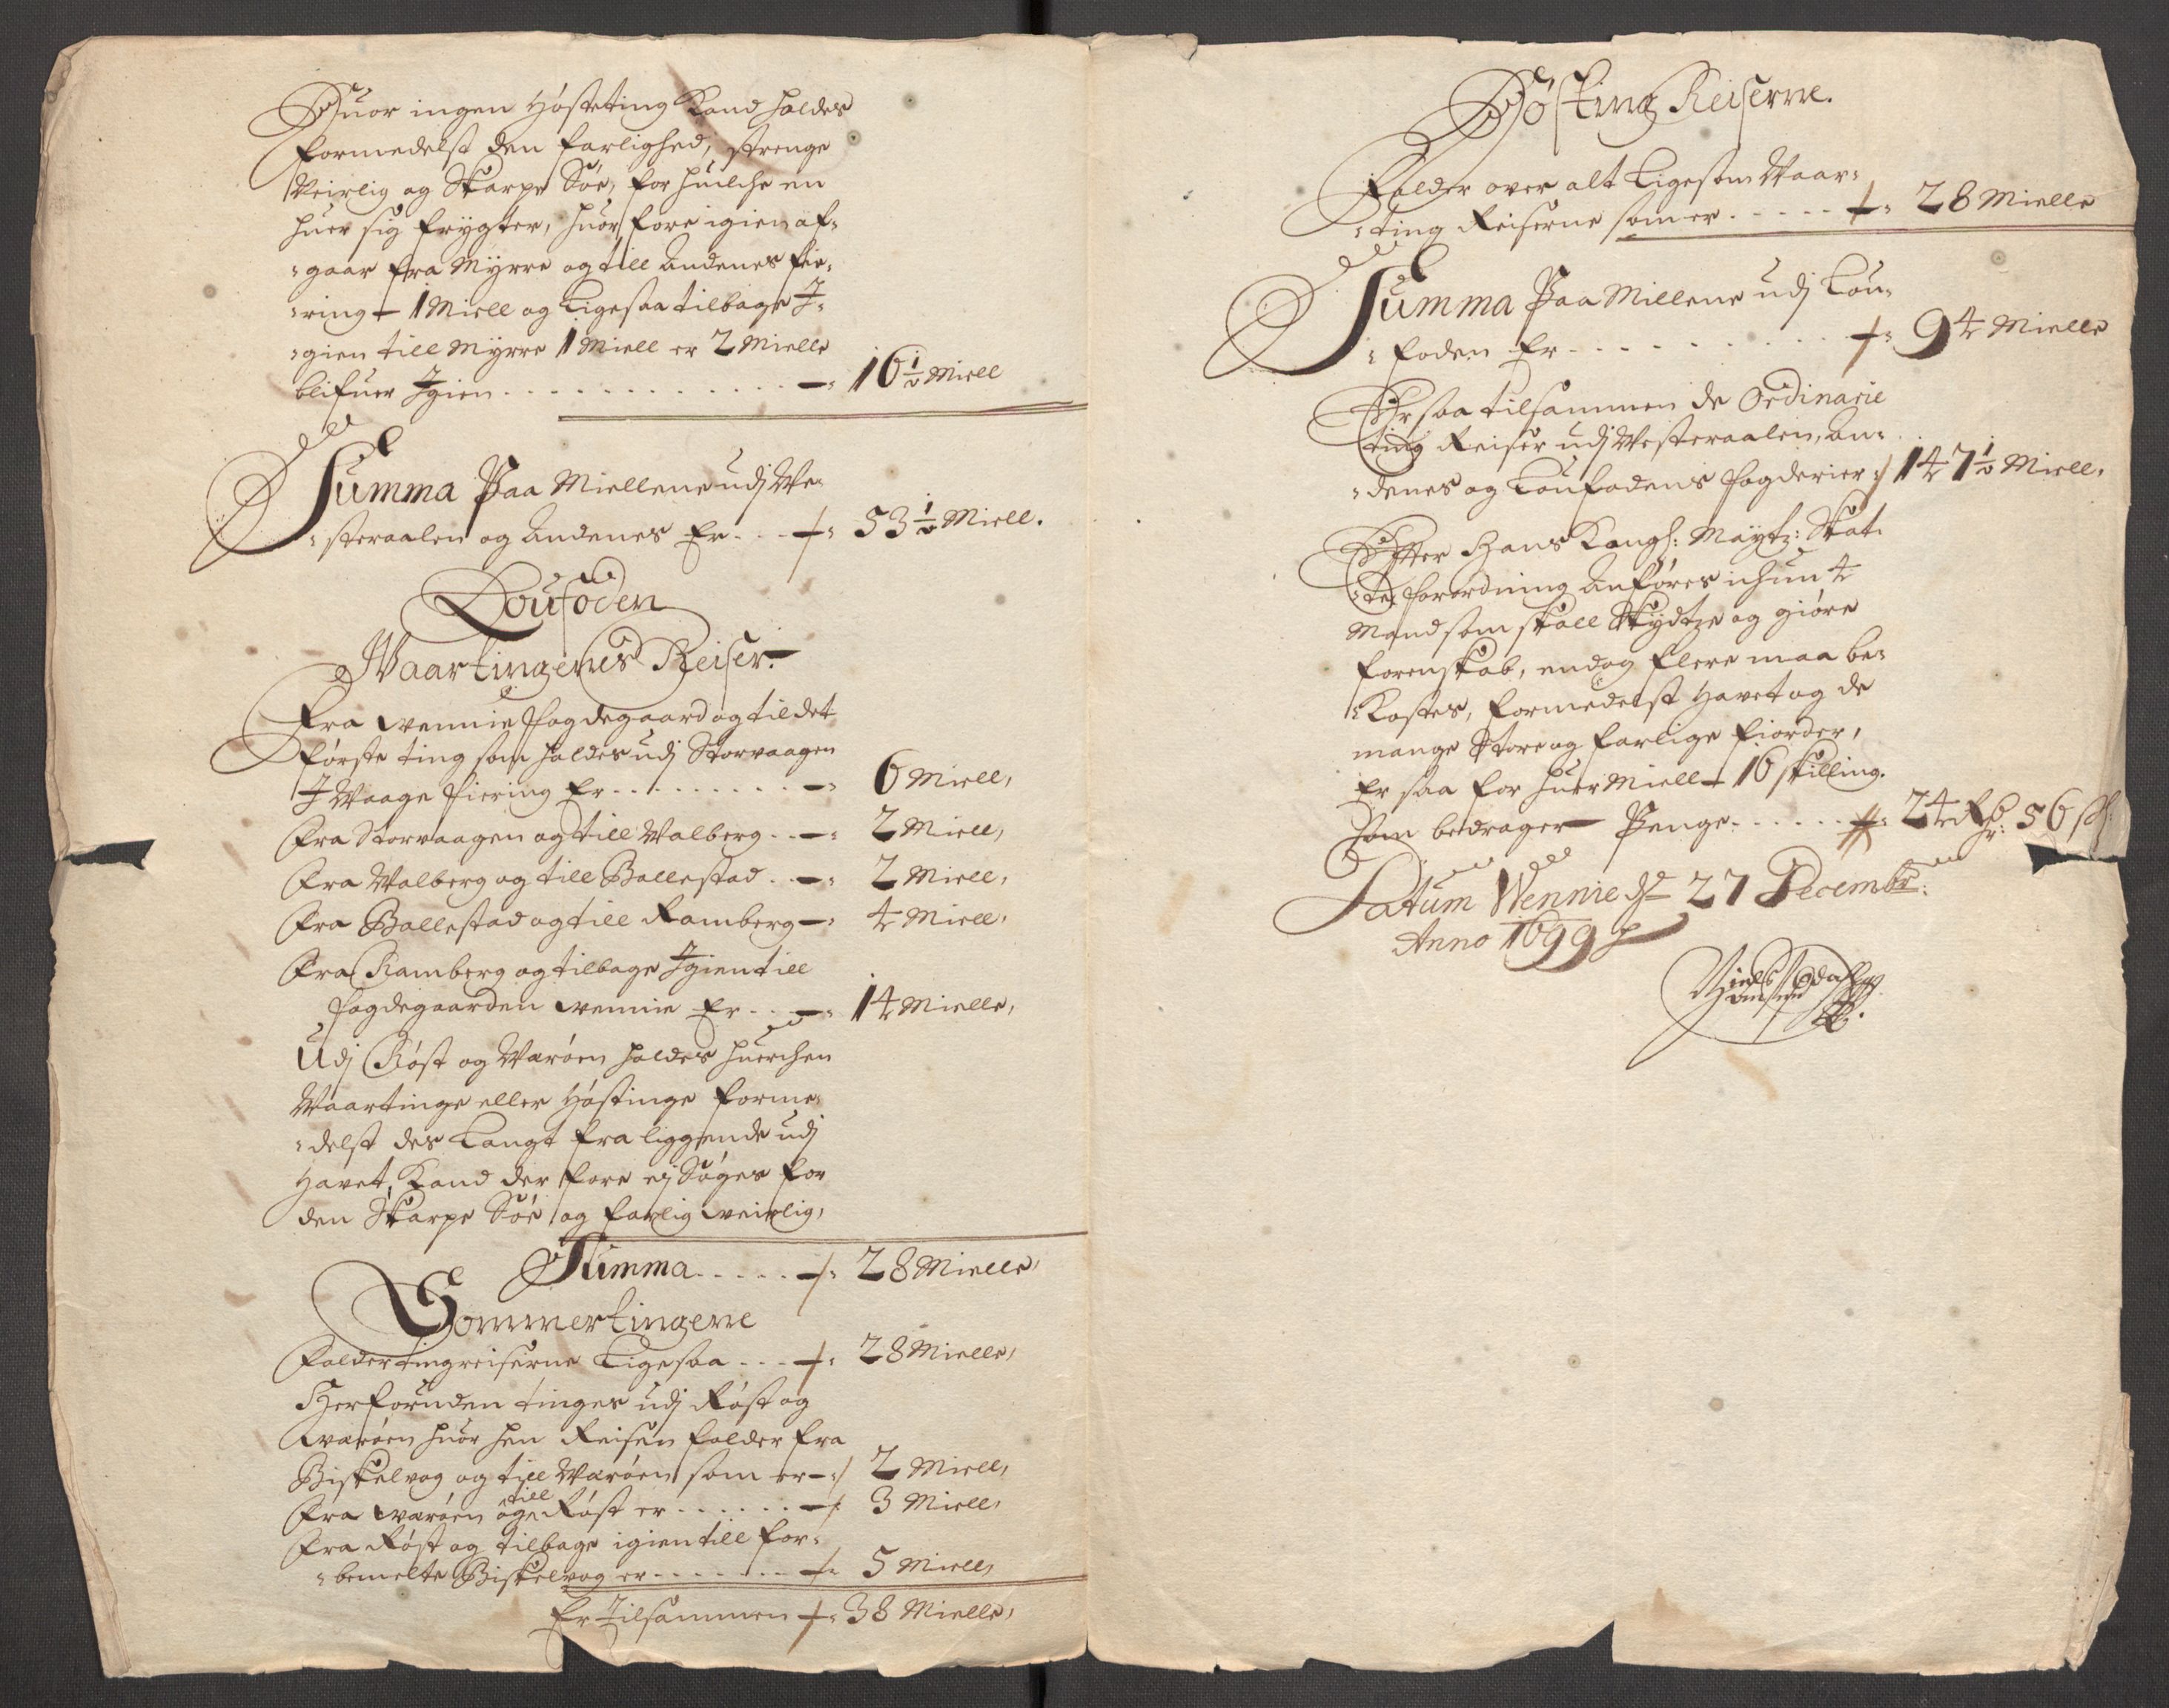 Huor ingen Høsteting Kand holdes
formedelst den farlighed, strenge
Veirlig og Skarpe Søe, for huilche en
huer sig frygter, huorfore igien af¬
gaar fra Myrre og till Andenes fie¬
ring ÷ 1 Miell og Ligesaa tilbage J¬
gien till Myrre 1 Miell er 2 Mielle
blifuer Jgien . . . . . . . . . . . . . ÷ 16½ Miell
Summa Paa Miellene udj We¬
steraalen og Andenes Er . . . ÷ 53½ Miell.
Loufoden
Waartingenes Reiser.
Fra Wennie Fogdegaard og til det
første ting som holdes udj Storvaagen
J Waage fiering Er . . . . . . . . . ÷ 6 Miell,
Fra Storvaagen og till Walberg . . ÷ 2 Miell,
Fra Walberg og till Ballestad . . ÷ 2 Miell,
Fra Ballestad og till Ramberg ÷ 4 Miell,
Fra Ramberg og tilbage Jgien till
fogdegaarden Wennie Er . . ÷ 14 Mielle,
Udj Røst og Warøen holdes huerchen
Waartinge eller Høstinge forme¬
delst des Langt fra liggende udj
Havet, Kand der fore ej Søges for
den Skarpe Søe og farlig veirlig,
Summa . . . . . ÷ 28 Mielle,
Sommertingene
Falder tingreiserne Ligesaa . . . ÷ 28 Mielle,
Herforuden tinges udj Røst og
Warøen huor hen Reisen falder fra
Biskelvog og till Warøen som er ÷ 2 Miell,
Fra Warøen og till Røst er . . . . . . ÷ 3 Miell,
Fra Røst og tilbage igien till for¬
bemelte Biskelvog er . . . . . . . ÷ 5 Miell,
Er Tilsammen ÷ 38 Mielle,
Høsting Reiserne.
Falder over alt Ligesom Waar¬
ting Reiserne som er . . . . . ÷ 28 Mielle
Summa Paa Millene udj Lou¬
foden Er . . . . . . . . . . ÷ 94 Mielle
Er saa tilsammen de Ordinarie
ting Reiser udj Westeraalen, An¬
denes og Loufodens fogderier ÷ 147½ Miell,
Efter Hans Kongl: Mayts: Skat¬
te forordning Anføres ichun 4
Mand som skall Skydtze og giøre
forenskab, endog flere maa be¬
kostes, formedelst Havet og de
mange Store og farlige fiorder,
Er saa for huer Miell ÷ 16 skilling.
Som bedrager Penge . . . . . . ÷ 24 Rdr: 56 s:
Datum Wennie d. 27 Decembr:
Anno 1699